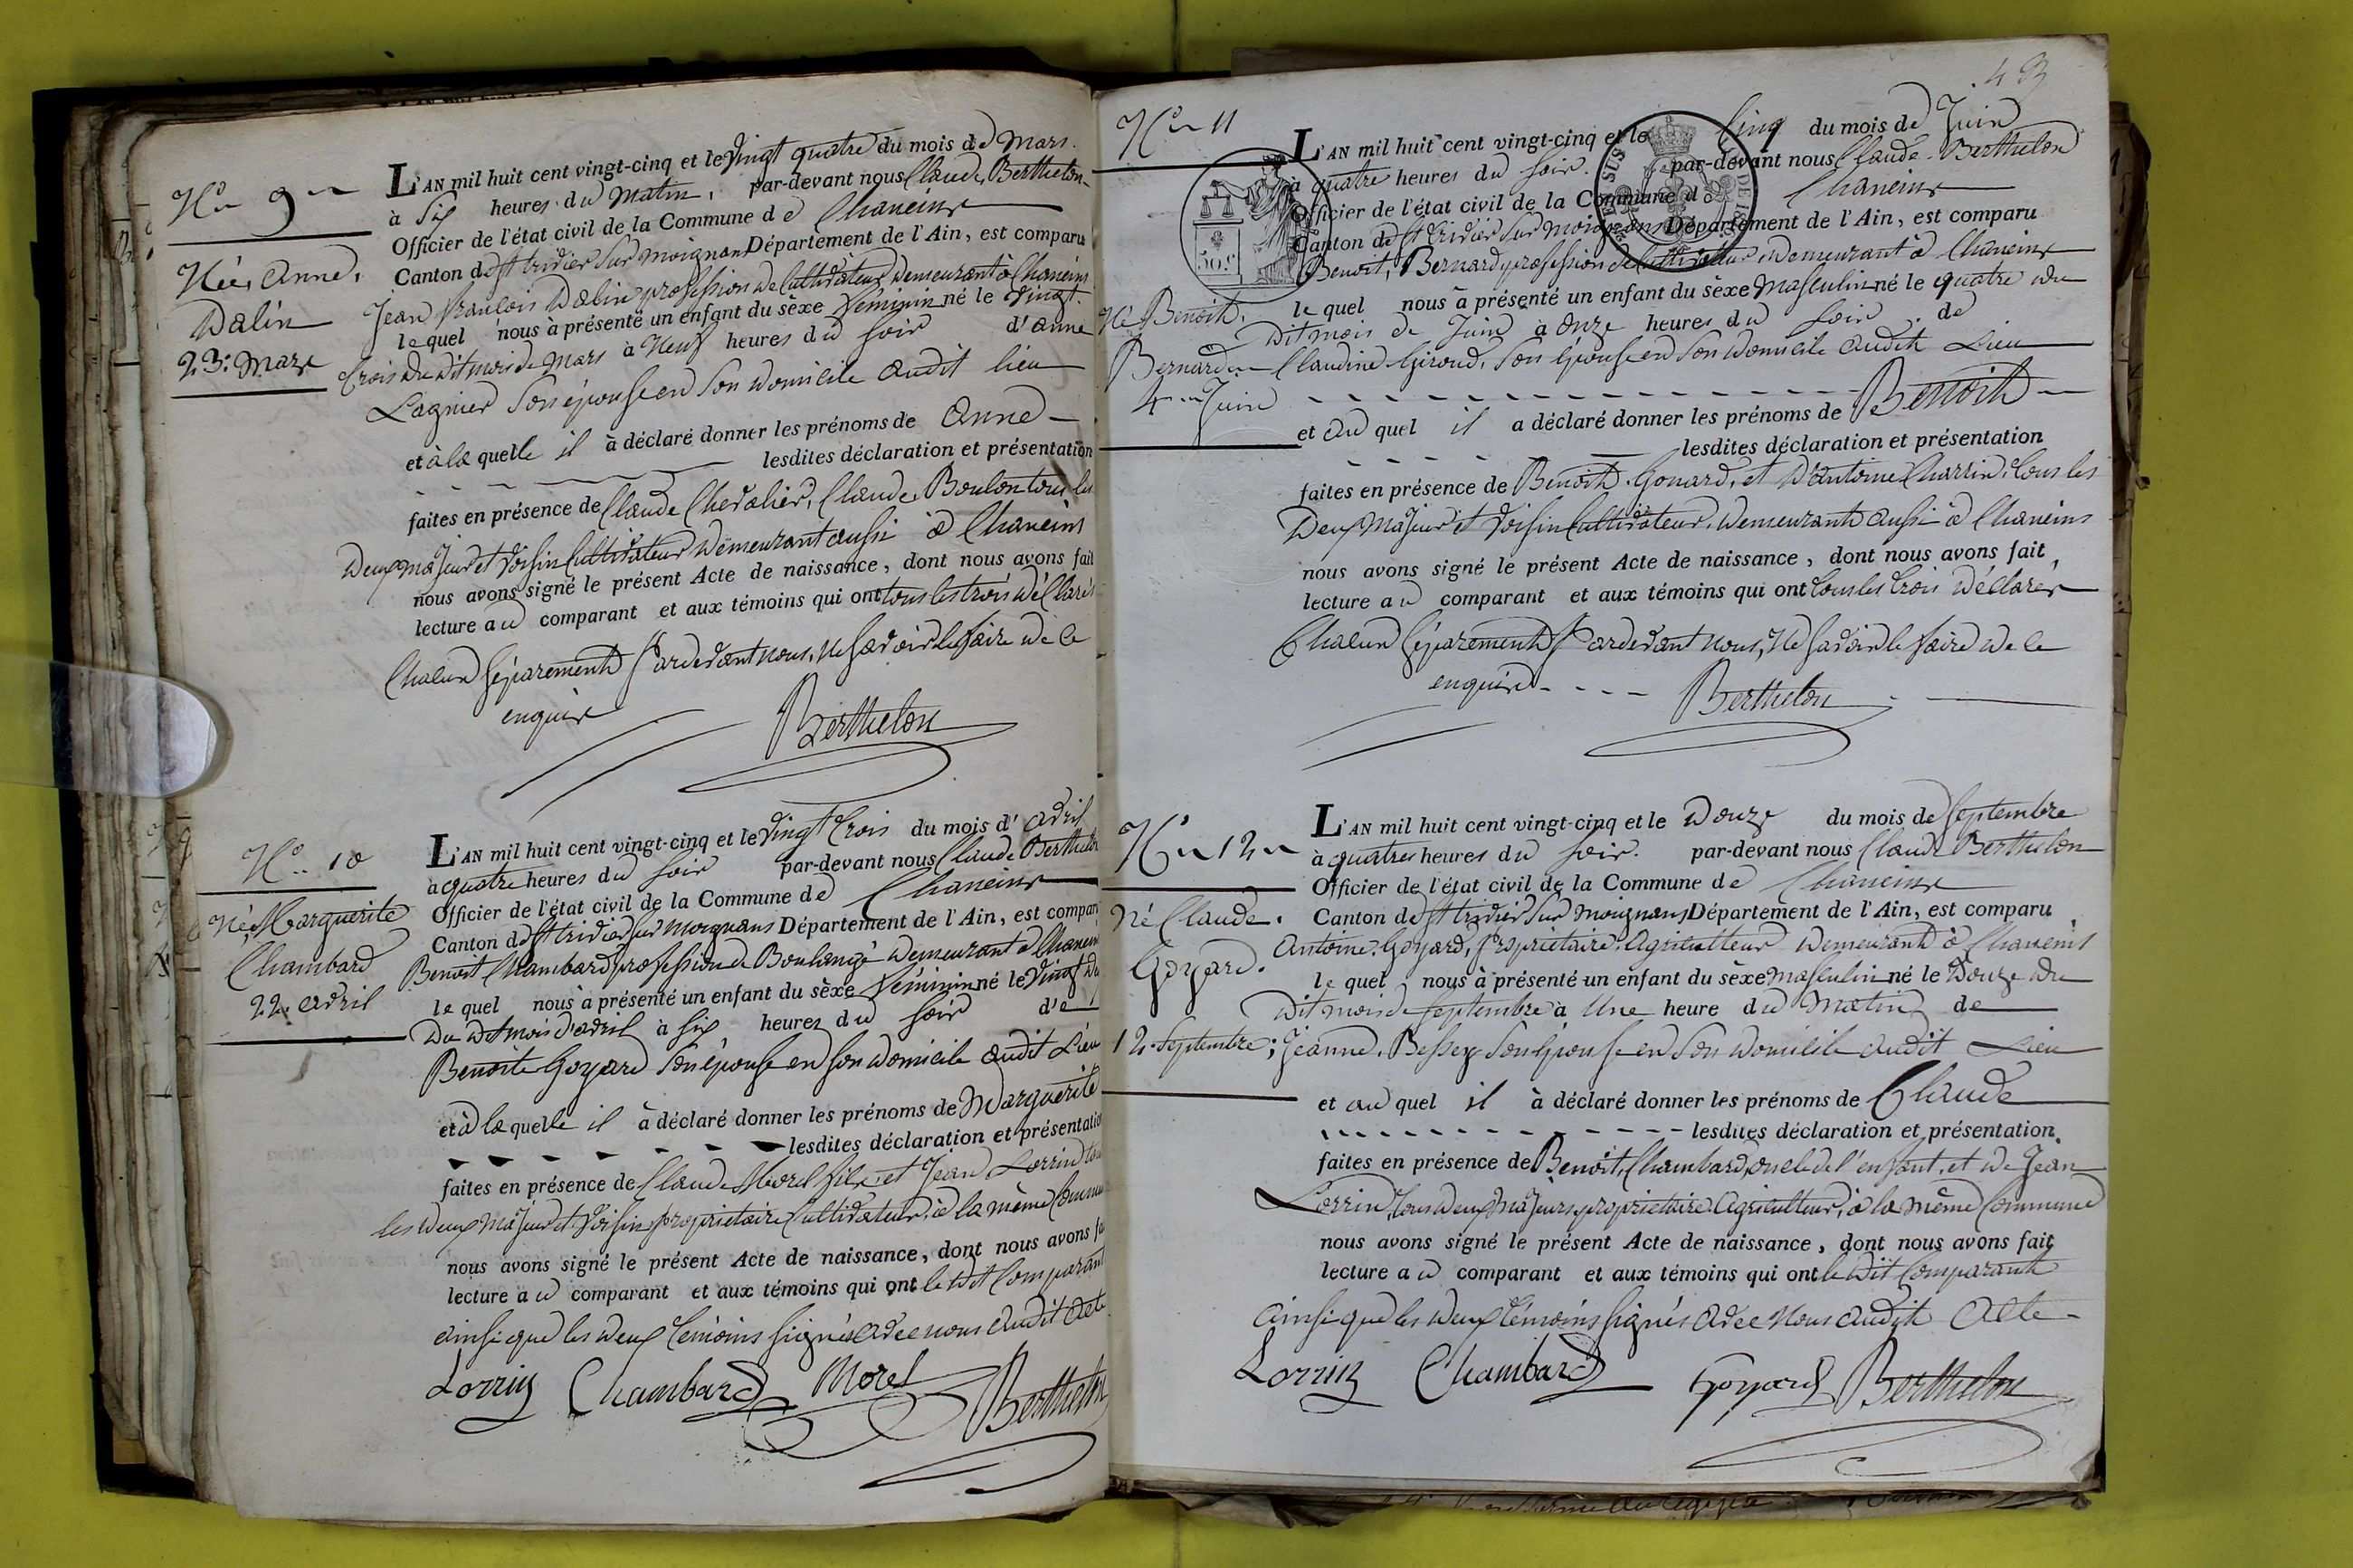 N.° 9
Née Anne
Dalin
23. Mars
L'AN mil huit cent vingt-cinq et le vingt quatre du mois de Mars
à Six heures du Matin, par-devant nous Claude Berthelon
Officier de l'état civil de la Commune de Chaneins
Canton de St tridier sur moignans Département de l'Ain, est comparu
Jean François Dalin profession de Cultivateur demeurant à Chaneins
le quel nous à présenté un enfant du sèxe Féminin né le vingt
trois du dit mois de Mars à Neuf heures du soir d'anne
Lagnier son épouse en son domicile audit lieu
et à la quelle il à déclaré donner les prénoms de Anne
lesdites déclaration et présentation
faites en présence de Claude Chevalier, Claude Boulon tous les
deux majeur et voisin Cultivateur demeurant aussi à Chaneins
nous avons signé le présent Acte de naissance, dont nous avons fait
lecture au comparant et aux témoins qui ont tous les trois déclarés
Chacun séparement pardevant nous, ne savoir le faire de ce
enquis
Berthelon
N.° 10
Née Marguerite
Chambard
22. avril
L'AN mil huit cent vingt-cinq et le vingt trois du mois d'avril
à quatre heures du soir par-devant nous Claude Berthelon
Officier de l'état civil de la Commune de Chaneins
Canton de St tridier sur moignans Département de l'Ain, est comparu
Benoit Chambard profession de Boulangé demeurant à Chaneins
le quel nous à présenté un enfant du sèxe Féminin né le vingt
du dit mois d'avril à six heures du soir de
Benoite Goyard son épouse en son domicile audit Lieu
et à la quelle il à déclaré donner les prénoms de Marguerite
lesdites déclaration et présentation
faites en présence de Claude Morel fils, et Jean Lorrin tous
les deux majeur et voisin propriétaire Cultivateur, à la même Commune
nous avons signé le présent Acte de naissance, dont nous avons fait
lecture au comparant et aux témoins qui ont le dit Comparant
ainsi que les deux témoins signés avec nous audit acte
Lorrin Chambard Morel
Berthelon
43
N.° 11
50 c.
Né Benoit
Bernard
4 Juin
L'AN mil huit cent vingt-cinq et le Cinq du mois de Juin
à quatre heures du soir. par-devant nous Claude Berthelon
Officier de l'état civil de la Commune de Chaneins
Canton de St tridier sur moignans Département de l'Ain, est comparu
Benoit, Bernard profession de Cultivateur demeurant à Chaneins
le quel nous à présenté un enfant du sèxe Masculin né le quatre du
dit mois de Juin à onze heures du soir de
Claudine Giroud, son épouse en son domicile audit Lieu
et au quel il a déclaré donner les prénoms de Benoit
lesdites déclaration et présentation
faites en présence de Benoit Gonard, et d'antoine Charrin, tous les
Deux Majeur et voisin Cultivateur, demeurant aussi à Chaneins
nous avons signé le présent Acte de naissance, dont nous avons fait
lecture au comparant et aux témoins qui ont tous les trois déclarés
Chacun séparement pardevant nous, Ne savoir le faire de ce
enquis
Berthelon
N.° 12
né Claude
Goyard.
12. Septembre
L'AN mil huit cent vingt-cinq et le Douze du mois de Septembre
à quatres heures du soir. par-devant nous Claude Berthelon
Officier de l'état civil de la Commune de Chaneins
Canton de St tridier sur moignans Département de l'Ain, est comparu
Antoine Goyard, propriétaire Agriculteur demeurant à Chaneins
le quel nous à présenté un enfant du sèxe Masculin né le Douze du
dit mois de Septembre à Une heure du Matin de
Jeanne Bessey son épouse en son domicile audit Lieu
et au quel il à déclaré donner les prénoms de Claude
lesdites déclaration et présentation
faites en présence de Benoit, Chambard, oncle de l'enfant, et de Jean
Lorrin, tous deux Majeurs propriétaire Agriculteur, à la même Commune
nous avons signé le présent Acte de naissance, dont nous avons fait
lecture au comparant et aux témoins qui ont le dit Comparant
ainsi que les deux témoins signés avec nous audit Acte
Lorrin Chambard Goyard Berthelon